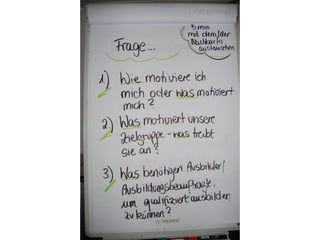 Frage...
5 min
mit dem/der
Nachbar/n
austauschen
1) Wie motiviere ich
mich oder was motiviert
mich?
2) Was motiviert unsere
Zielgruppe - was treibt
sie an?
3) Was benötigen Ausbilder/
Ausbildungsbeauftragte,
um qualifiziert ausbilden
zu können?
neuland